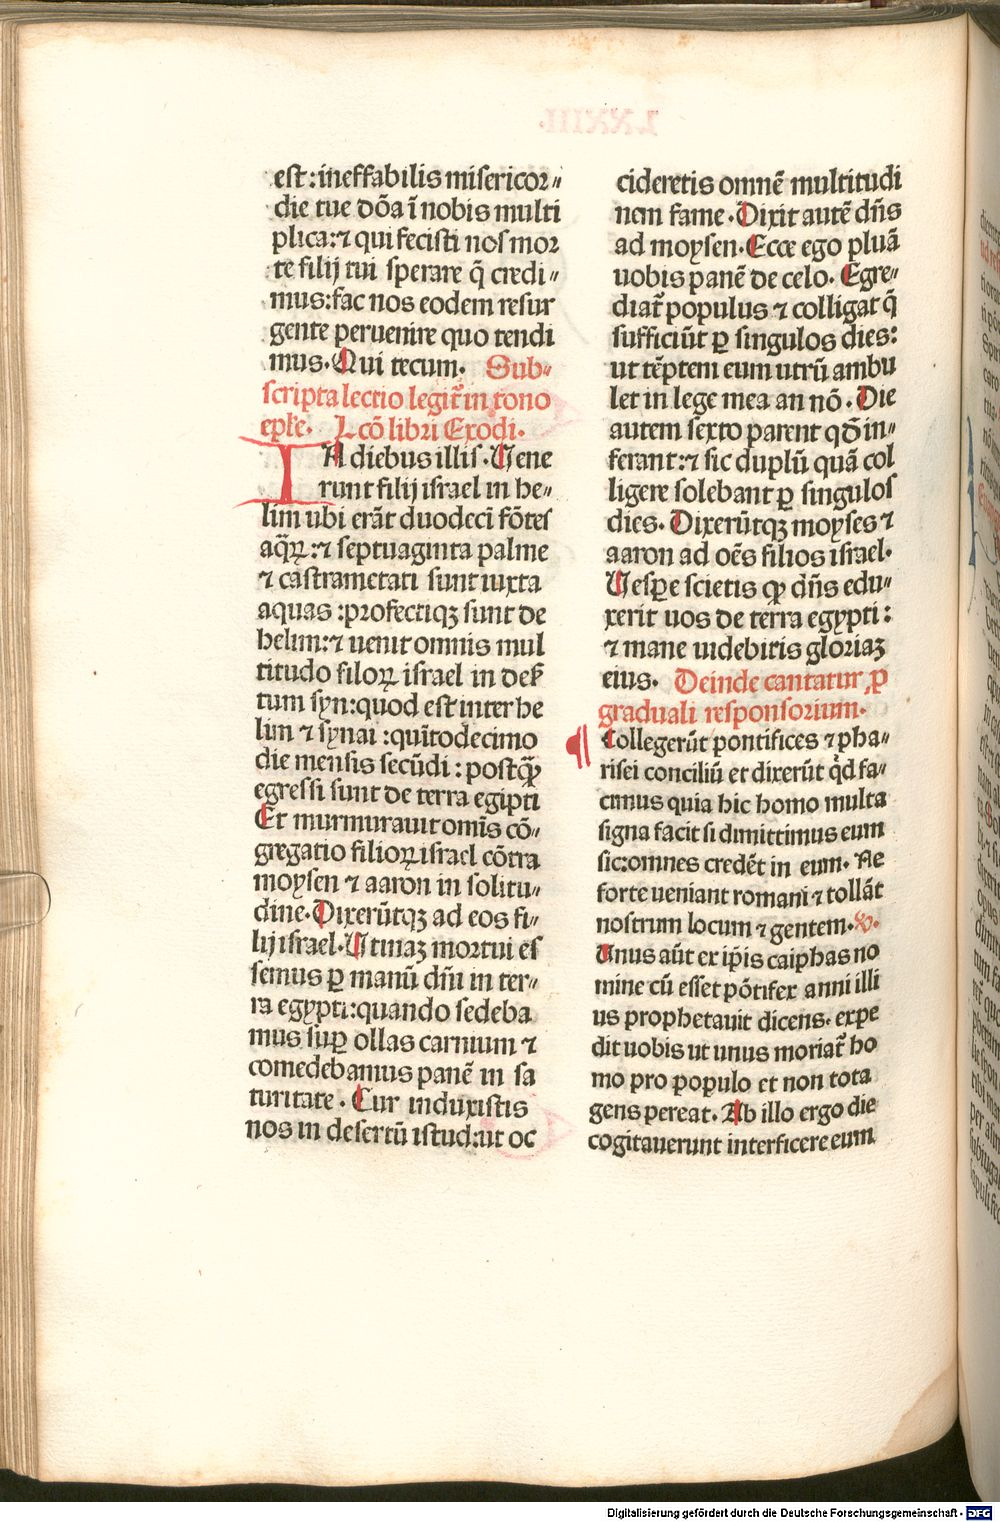 est: ineffabilis misericor⸗
die tue dōa ī nobis multi
plica: ⁊ qui fecisti nos mor
te filij tui sperare q̄ credi⸗
mus: fac nos eodem resur
gente peruenire quo tendi
mus. Qui tecum. Sub⸗
scripta lectio legit᷑ in tono
ep̄le. Lcō libri Exodi.
IN diebus illis. Vene
runt filij israel in he⸗
lim ubi erāt duodecī fōtes
aq̄ꝝ: ⁊ septuaginta palme
⁊ castrametati sunt iuxta
aquas: profectiqꝫ sunt de
helim: ⁊ uenit omnis mul
titudo filioꝝ israel in des̄
tum syn: quod est inter he
lim ⁊ synai: quītodecimo
die mensis secūdi: postꝙ̄
egressi sunt de terra egipti
Et murmurauit omīs cō⸗
gregatio filioꝝ israel cōtra
moysen ⁊ aaron in solitu⸗
dine. Dixerūtqꝫ ad eos fi⸗
lij israel. Utinaꝫ mortui es
semus ꝑ manū dn̄i in ter⸗
ra egypti: quando sedeba
mus suꝑ ollas carnium ⁊
comedebamus panē in sa
turitate. Cur induxistis
nos in desertū istud: ut oc
cideretis omnē multitudi
nem fame. Dixit autē dn̄s
ad moysen. Ecce ego pluā
uobis panē de celo. Egre⸗
diat᷑ populus ⁊ colligat q̄
sufficiūt ꝑ singulos dies:
ut tēptem eum utrū ambu
let in lege mea an nō. Die
autem sexto parent qđ in⸗
ferant: ⁊ sic duplū quā col
ligere solebant ꝑ singulos
dies. Dixerūtqꝫ moyses ⁊
aaron ad oēs filios israel.
Vespe scietis ꝙ dn̄s edu⸗
xerit uos de terra egypti:
⁊ mane uidebitis gloriaꝫ
eius. Deinde cantatur ꝓ
graduali responsorium.
Collegerūt pontifices ⁊ pha⸗
risei conciliū et dixerūt q̇d fa⸗
cimus quia hic homo multa
signa facit si dimittimus eum
sic: omnes credēt in eum. Ne
forte ueniant romani ⁊ tollāt
nostrum locum ⁊ gentem. ℣.
Unus aūt ex ip̄is caiphas no
mine cū esset pōtifex anni illi
us prophetauit dicens. expe
dit uobis ut unus moriat᷑ ho
mo pro populo et non tota
gens pereat. Ab illo ergo die
cogitauerunt interficere eum
Digitalisierung gefördert durch die Deutsche Forschungsgemeinschaft - DFG